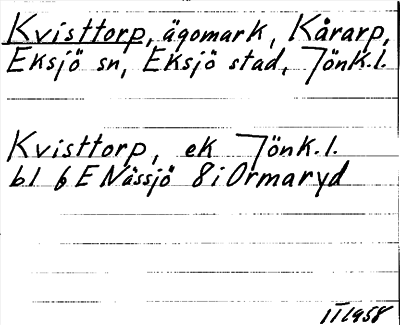 Kvisttorp, ägomark, Kårarp,
Eksjö sn, Eksjö stad, Jönk.l.
Kvisttorp, ek Jönk.l.
bl 6 E Nässjö 8 i Ormaryd
II 1958